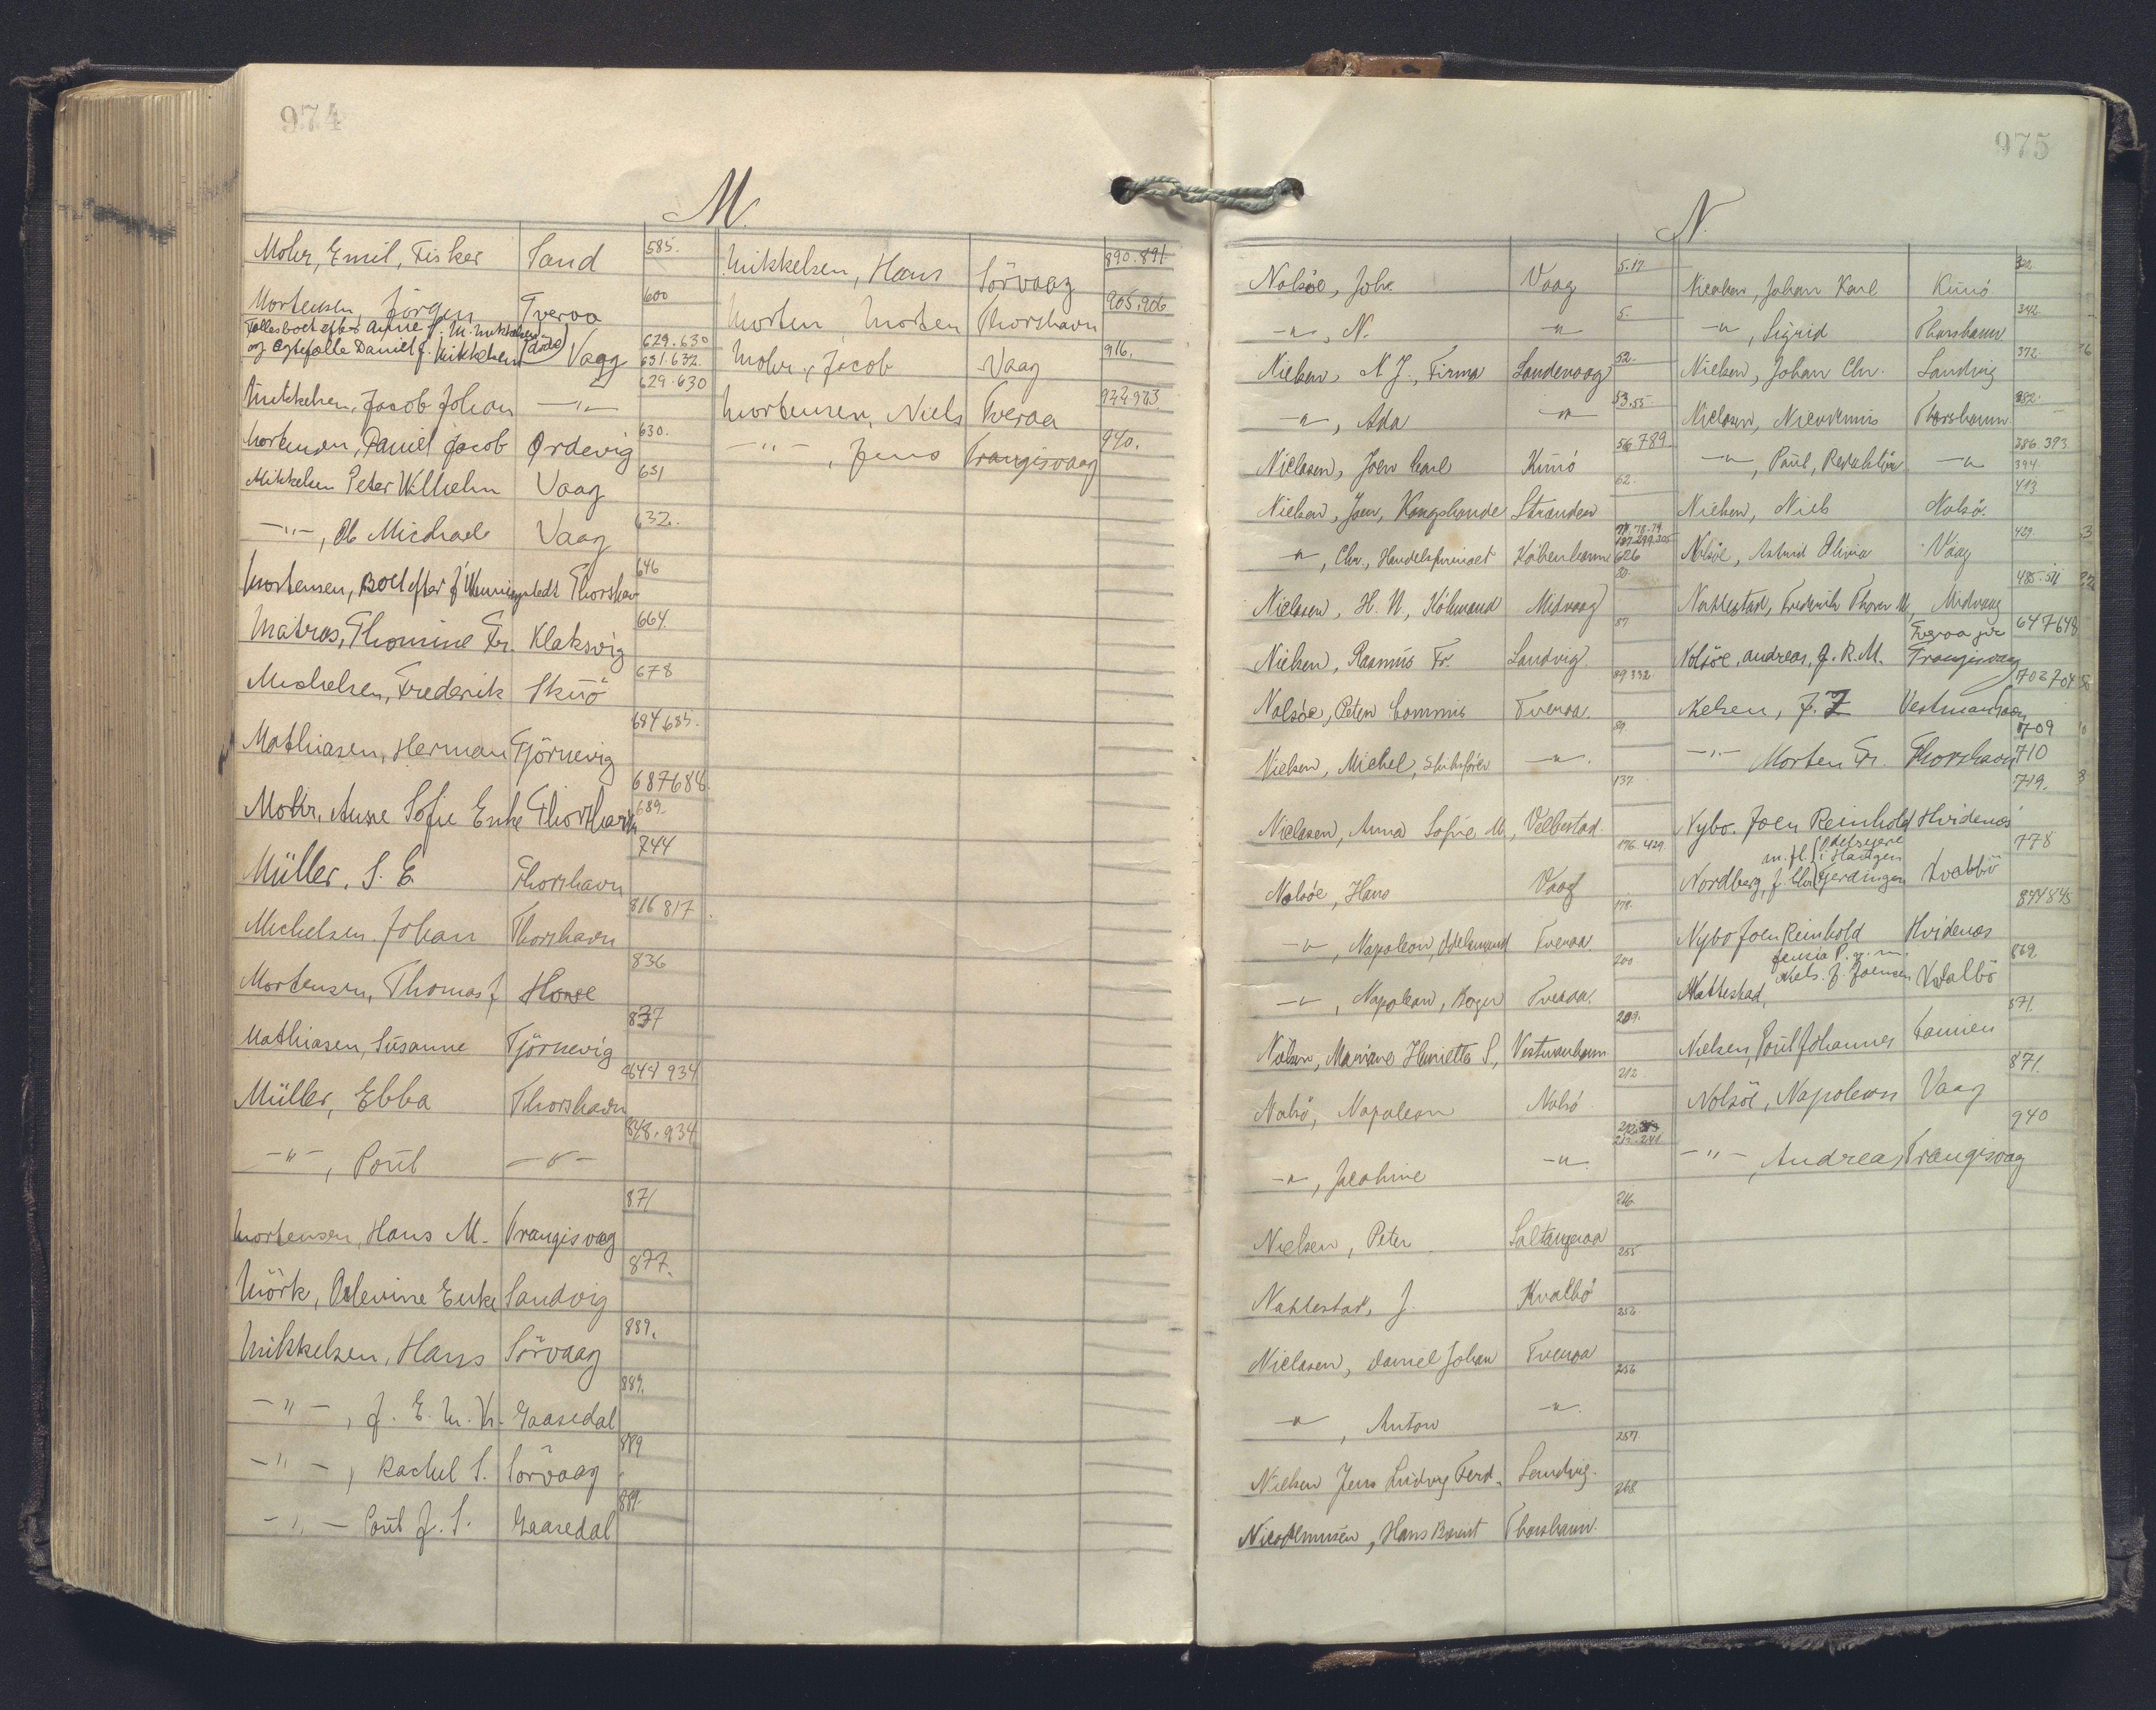 974
M.
Mohr, Emil, Fisker Sand 585.
Mortensen, Jörgen Tveraa 600
Fællesboet efter Anne S. M. Mikkelsen
og Ægtefælle Daniel J. Mikkelsen (döde) Vaag 629.630 631.632.
Mikkelsen, Jacob Johan -"- 629.630
Mortensen, Daniel Jacob Ørdevig 630.
Mikkelsen Peter Wilhelm Vaag 631
-"-, Ob Michael Vaag 632.
Mortensen, Boet efter J. Thorshavn 646
Matras, Thomine Fr. Klaksvig 664.
Michelsen, Frederik Skuö 678
Mathiasen, Herman Tjörnevig 684 685.
Mohr, Anne Sofie Enke Thorshavn 687 688. 689.
Müller, S. E. Thorshavn 744
Michelsen, Johan Thorshavn 816 817
Mortensen, Thomas J Hove 836
Mathiasen, Susanne Tjörnevig 837
Müller, Ebba Thorshavn 848 934
-"-, Poul -"- 848.934
Mortensen, Hans M. Trangisvaag 871
Mörk, Olevine Enke Sandvig 877.
Mikkelsen, Hans Sörvaag 889.
-"-, J. E. M. K. Gaasedal 889.
-"-, Rachel S. Sörvaag 889
-"- Poul J. S. Gaasedal 889.
Mikkelsen, Hans Sörvaag 890.891
Morten Morten Thorshavn 905.906
Mohr, Jacob Vaag 916.
Mortensen, Niels Tveraa
-"-, Jens Trangisvaag 940.
975
N.
Nolsöe, Johs Vaag 5.17
-"-, N. -"- 5.
Nielsen, N. J., Firma Sandevaag 52.
-"-, Ada -"- 53.55.
Niclasen, Joen Carl Kunö 56 789
Nielsen, Joen, Kongsbonde Stranden 62.
-"-, Chr., Handelsfirmaet Köbenhavn 626
Niclasen, H. N., Köbmand Midvaag 80.
Nielsen, Rasmus Fr. Sandvig 87
Nolsöe, Peter Commis Tveraa. 89.332.
Nielsen, Michel, Skibsförer -"-. 89.
Niclasen, Anna Sofie M., Velbestad. 137.
Nolsöe, Hans Vaag 176.429.
-"-, Napoleon, Tveraa. 178.
-"-, Napoleon, Bager Tveraa. 200.
Nolsöe, Mariane Henriette S., Vestmanhavn 209.
Nolsö, Napoleon Nolsö 212.
-"-, Jacobine -"- 213.241
Nielsen, Peter Saltangeraa 216.
Nattestad, J. Kvalbö 255
Niclasen, Daniel Johan Tveraa 256.
-"-, Anton -"-. 256
Nielsen Jens Ludvig Ferd. Sandvig. 257.
Nicodemusen, Hans Berint Thorshavn. 268.
Niclasen, Johan Karl Kunö 322
-"-, Sigrid Thorshavn 342.
Nielsen, Johan Chr. Sandvig 372.
Niclasen, Nicodemus Thorshavn 382.
-"-, Poul, Redaktör -"- 386 393 394.
Nielsen, Niels Nolsö. 413
Nolsöe, Astrid Olivia Vaag 429.
Nattestad, Frederik Thomas M. Midvaag 485.511
Nolsöe, Andreas, J. R. M. Tveraa Trangisvaag 647 648
Nielsen, J. J. Vestmanhavn 703 704
-"- Morten Fr. Thorshavn 709 710
Nybo. Joen Reinhold Hvidenæs 719.
m. fl. (Odelsejere i Haugen
Nordberg, J. Chr. Gerdinger Kvalbö 778
Nybo Joen Reinhold Hvidenæs 844 845
Nattestad, Jensia P. g. m. Niels. J. Joensen Kvalbö 869
Nielsen, Poul Johannes Famien 871.
Nolsöe, Napoleon Vaag 871.
-"-, Andreas Trangisvaag 940